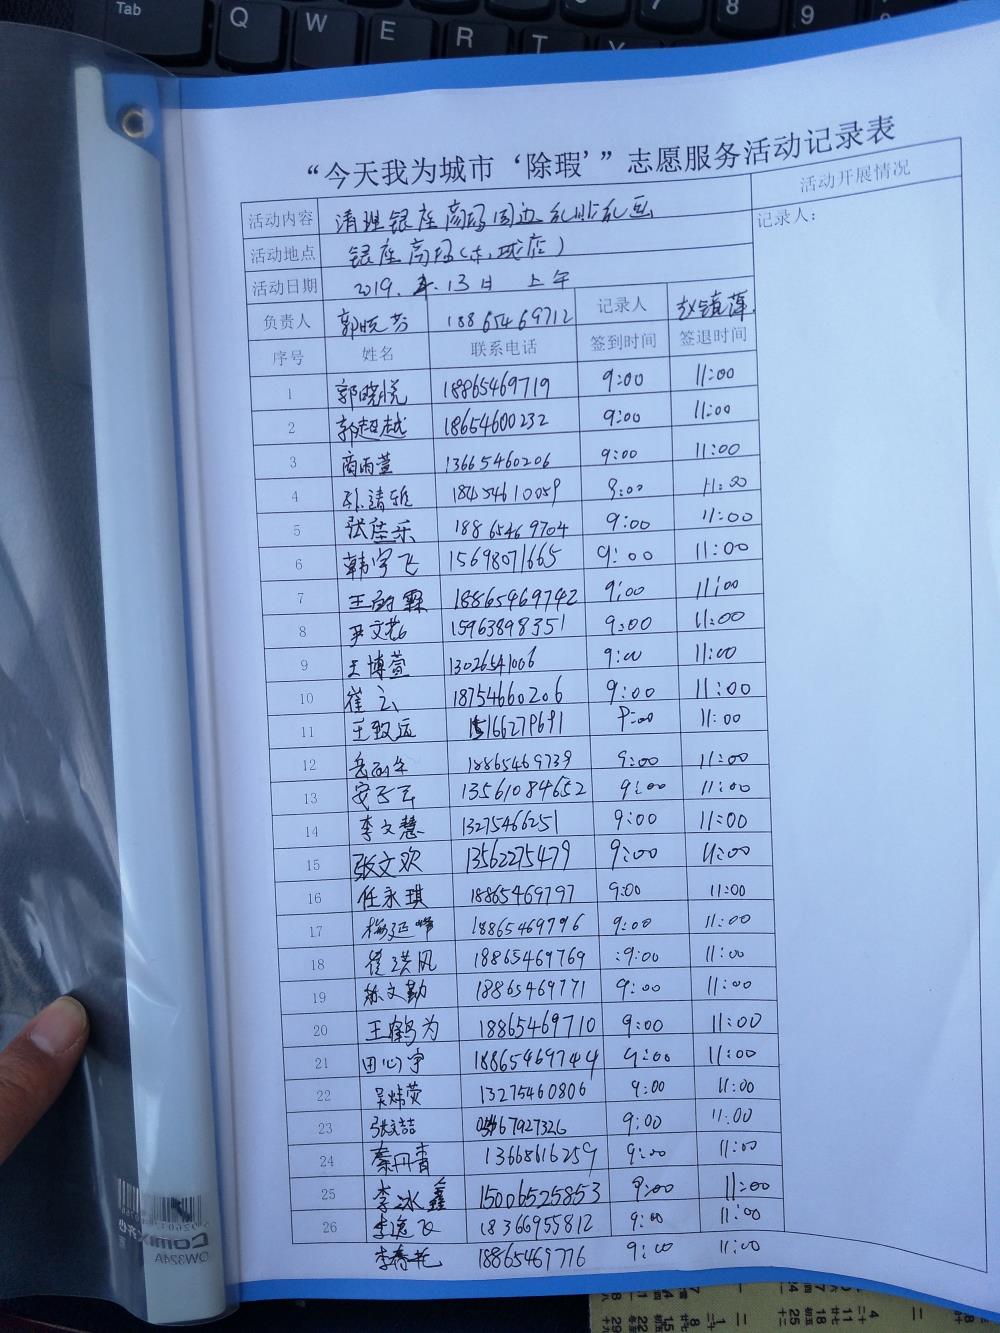 Tab Q W E R T Y 7 8 9
“今天我为城市‘除瑕’”志愿服务活动记录表
活动内容 清理银座商场周边乱贴乱画 活动开展情况
活动地点 银座商场(东城店) 记录人:
活动日期 2019. 13日 上午
负责人 郭晓芬 18865469712 记录人 赵镜萍
序号 姓名 联系电话 签到时间 签退时间
1 郭晓悦 18865469719 9:00 11:00
2 郭超越 18654600232 9:00 11:00
3 商雨萱 13665460206 9:00 11:00
4 孙靖雅 18454610059 9:00 11:00
5 张佳乐 18865469704 9:00 11:00
6 韩宇飞 15698071665 9:00 11:00
7 王 霖 18865469742 9:00 11:00
8 尹文 15963898351 9:00 11:00
9 王博萱 13026541006 9:00 11:00
10 崔云 18754660206 9:00 11:00
11 王致远 15166279691 9:00 11:00
12 18865469739 9:00 11:00
13 安子云 13561084652 9:00 11:00
14 李文慧 13275466251 9:00 11:00
15 张文欢 13562275479 9:00 11:00
16 任永琪 18865469797 9:00 11:00
17 梅延峰 18865469796 9:00 11:00
18 崔洪风 18865469769 :9:00 11:00
19 孙文勤 18865469771 9:00 11:00
20 王鹤为 18865469710 9:00 11:00
21 田心宇 18865469744 9:00 11:00
22 吴炜荧 13275460806 9:00 11:00
23 张喆 67927326 9:00 11:00
24 秦丹青 13668616259 9:00 11:00
25 李冰鑫 15006525853 9:00 11:00
26 李逸飞 18366955812 9:00 11:00
李春花 18865469776 9:00 11:00
COMIX
OW324A